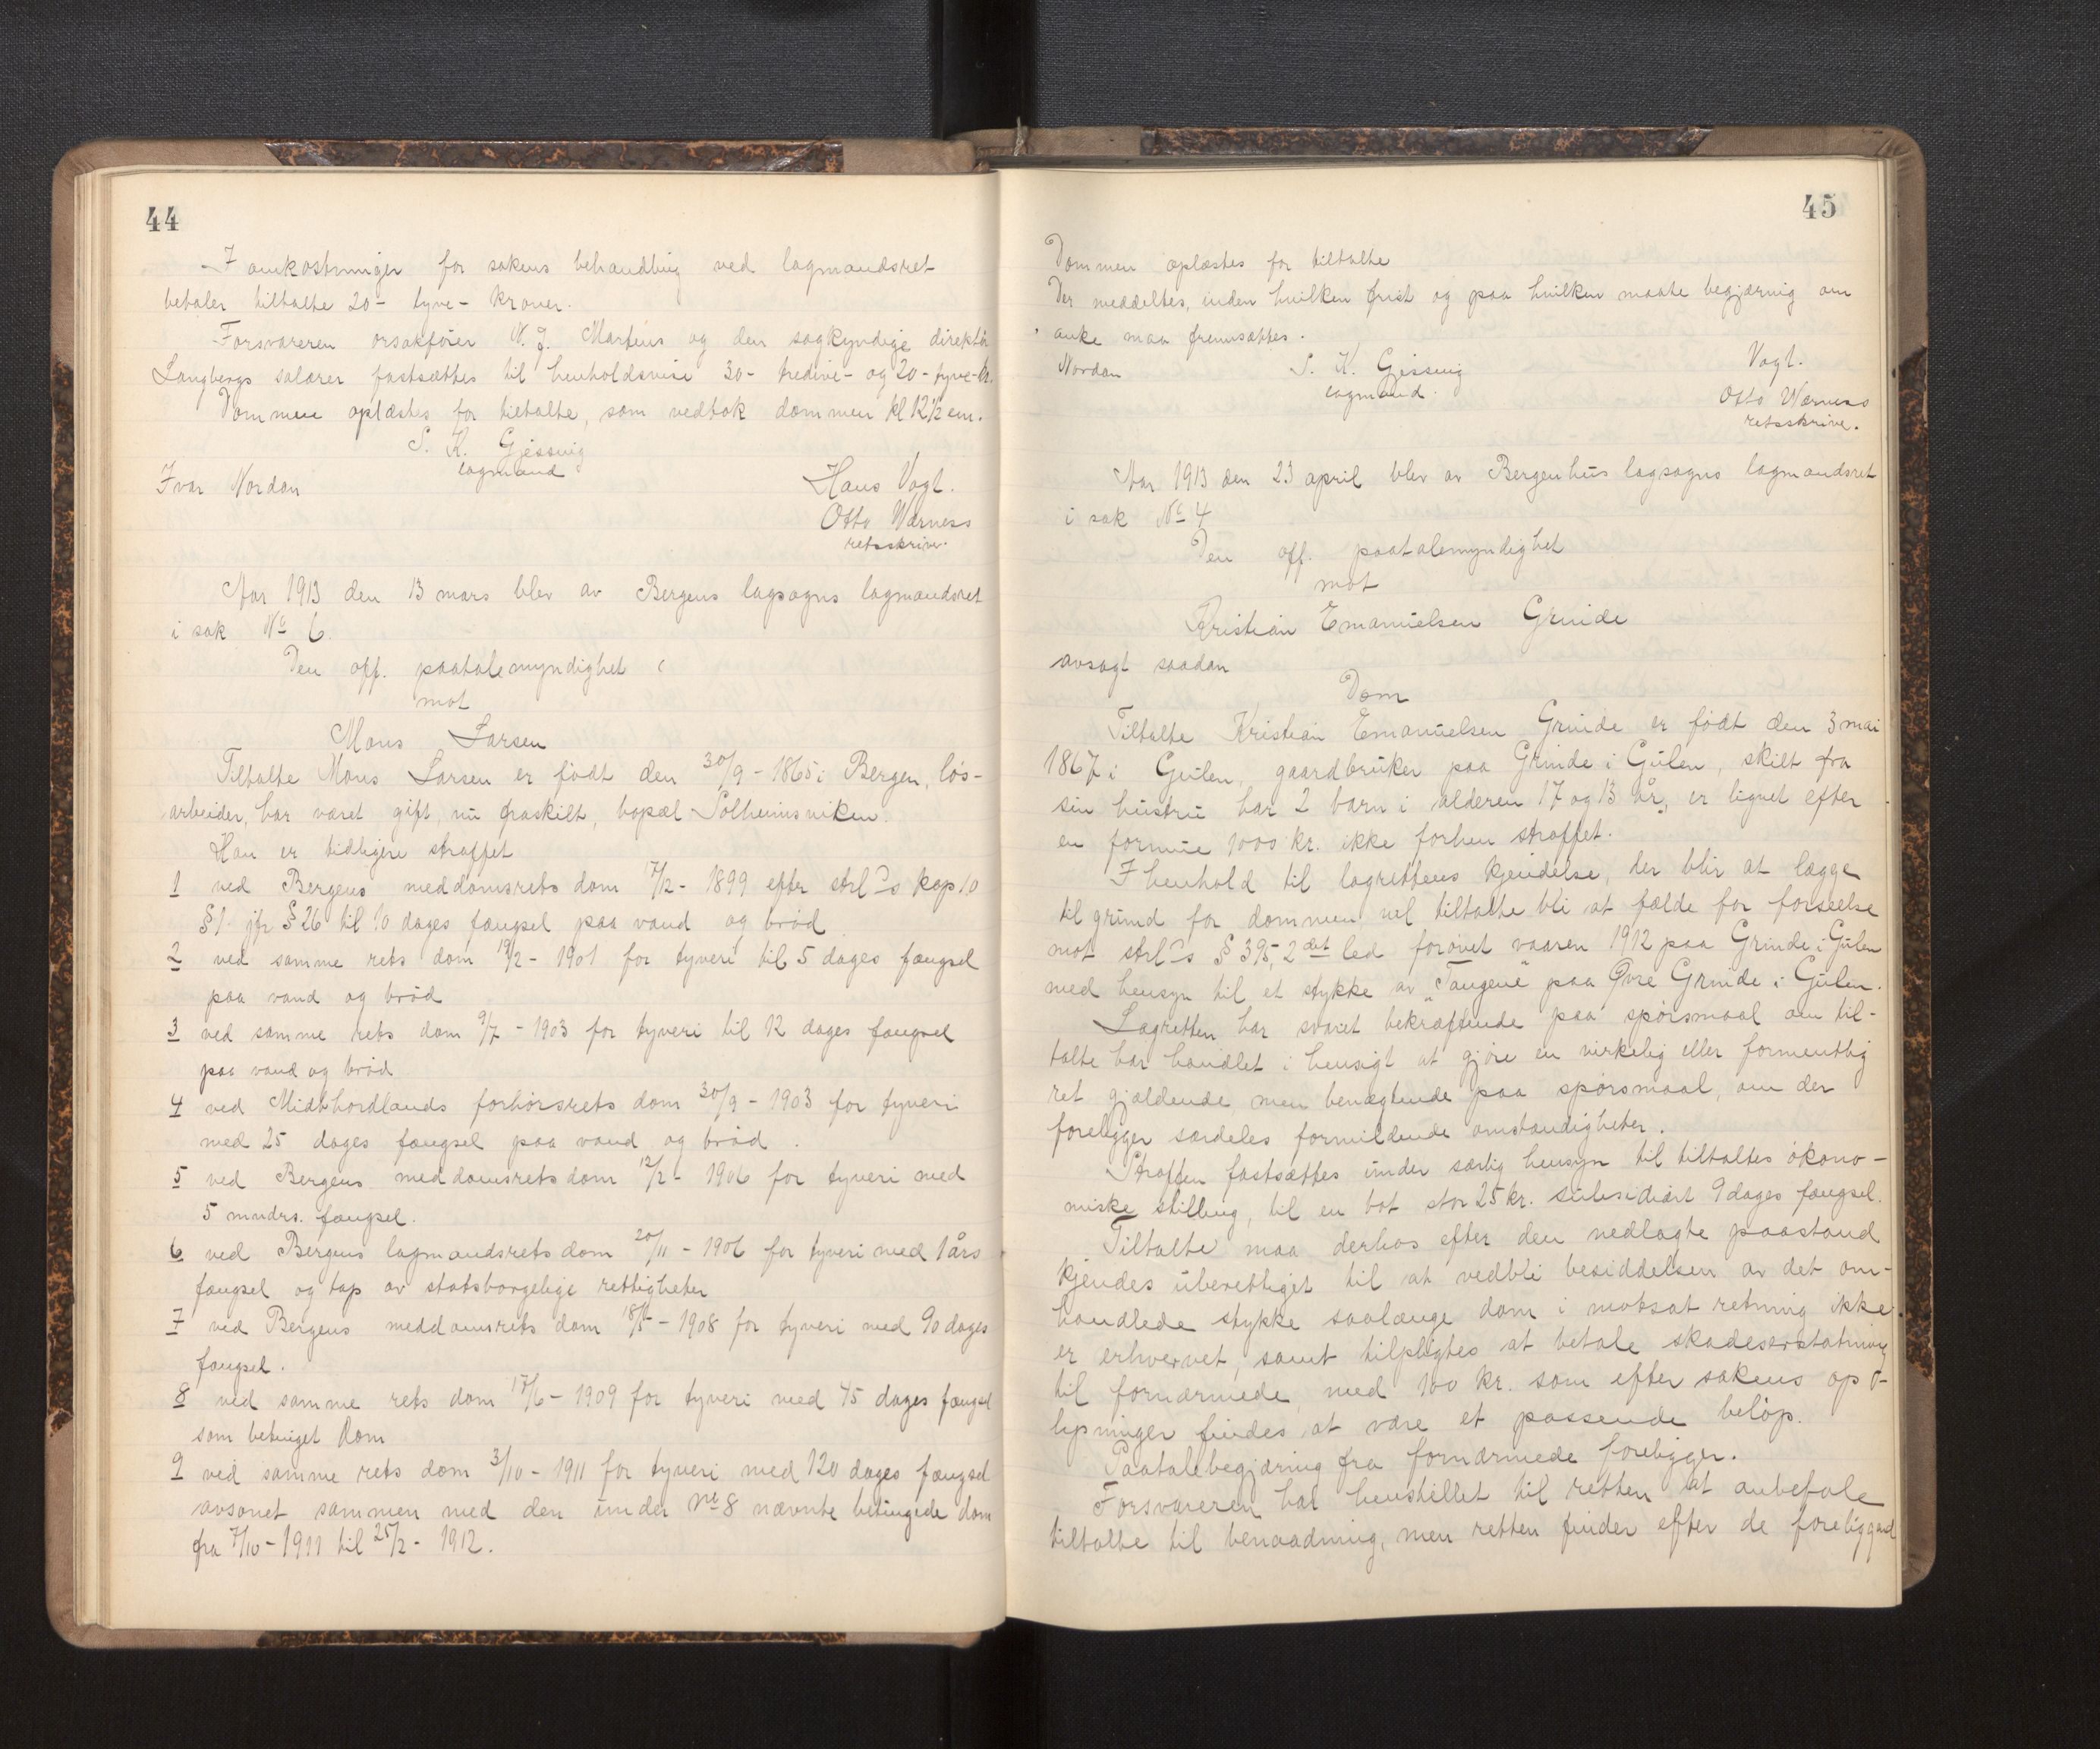 44
I omkostninger for sakens behandling ved lagmandsret
betaler tiltalte 20 - tyve - kroner.
Forsvareren orsakfører N. J. Martens og den sagkyndige direktör
Langbergs salærer fastsættes til henholdsvise 30 - tredive - og 20 - tyve - kr.
Dommen oplæstes for tiltalte, som vedtok dommen kl 12 1/2 em.
S. K. Gjessing
lagmand
Ivar Nordan
Hans Vogt.
Otto Wærness
retsskriver.
Aar 1913 den 13 mars blev av Bergens lagsogns lagmandsret
i sak No 6
Den off. paatalemyndighet
mot
Mons Larsen
Tiltalte Mons Larsen er født den 30/9 - 1865 i Bergen, løs-
arbeider, har været gift, nu fraskilt, bopæl Solheimsviken.
Han er tidligere straffet
1 ved Bergens meddomsrets dom 7/12 - 1899 efter strl's kap 10
§ 1 jfr § 26 til 10 dages fængsel paa vand og brød
2 ved samme rets dom 19/2 - 1901 for tyveri til 5 dages fængsel
paa vand og brød
3 ved samme rets dom 9/7 - 1903 for tyveri til 12 dages fængsel
paa vand og brød
4 ved Midthordlands forhørsrets dom 30/9 - 1903 for tyveri
med 25 dages fængsel paa vand og brød.
5 ved Bergens meddomsrets dom 12/2 - 1906 for tyveri med
5 mndrs. fængsel.
6 ved Bergens lagmandsrets dom 20/11 - 1906 for tyveri med 1 års
fængsel og tap av statsborgelige rettigheter
7 ved Bergens meddomsrets dom 18/5 - 1908 for tyveri med 90 dages
fængsel.
8 ved samme rets dom 17/6 - 1909 for tyveri med 45 dages fængsel
som betinget dom
9 ved samme rets dom 3/10 - 1911 for tyveri med 120 dages fængsel
avsonet sammen med den under No 8 nævnte betingede dom
fra 7/10 - 1911 til 25/2 - 1912.
45
Dommen oplæstes for tiltalte
Der meddeltes, inden hvilken frist og paa hvilken maate begjæring om
anke maa fremsættes.
Nordan
S. K. Gjessing
lagmand.
Vogt.
Otto Wærness
retsskriver.
Aar 1913 den 23 april blev av Bergenhus lagsogns lagmandsret
i sak No 4
Den off. paatalemyndighet
mot
Kristian Emanuelsen Grinde
avsagt saadan
Dom
Tiltalte Kristian Emanuelsen Grinde er født den 3 mai
1867 i Gulen, gaardbruker paa Grinde i Gulen, skilt fra
sin hustru har 2 barn i alderen 17 og 13 år, er lignet efter
en formue 1000 kr. ikke forhen straffet.
I henhold til lagrettens kjendelse, der blir at lægge
til grund for dommen vil tiltalte bli at fælde for forseelse
mot strl's § 395, 2det led forøvet vaaren 1912 paa Grinde i Gulen
med hensyn til et stykke av "Tangene" paa Øvre Grinde i Gulen.
Lagretten har svaret bekræftende paa spørsmaal om til-
talte har handlet i hensigt at gjøre en virkelig eller formentlig
ret gjældende, men benægtende paa spørsmaal, om der
foreligger særdeles formildende omstændigheter.
Straffen fastsættes under særlig hensyn til tiltaltes økono-
miske stilling, til en bot stor 25 kr. subsidiært 9 dages fængsel.
Tiltalte maa derhos efter den nedlagte paastand
kjendes uberettiget til at vedbli besiddelsen av det om-
handlede stykke saalænge dom i motsat retning ikke
er erhvervet, samt tilpligtes at betale skadeserstatning
til fornærmede, med 100 kr. som efter sakens op-
lysninger findes at være et passende beløp.
Paatalebegjæring fra fornærmede foreligger.
Forsvareren har henstillet til retten at anbefale
tiltalte til benaadning, men retten finder efter de foreliggend